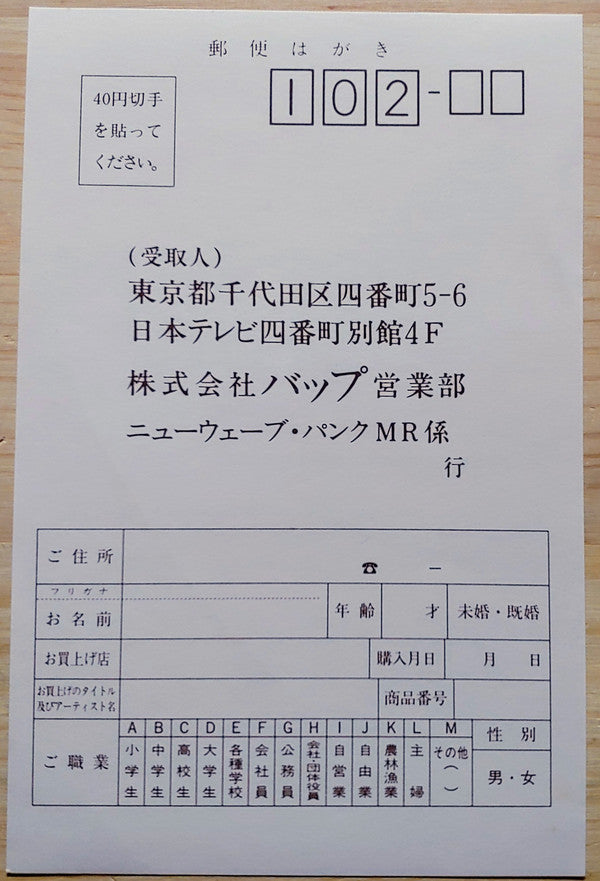 郵便はがき
40円切手
を貼って
ください。
102-
(受取人)
東京都千代田区四番町5-6
日本テレビ四番町別館4F
株式会社バップ営業部
ニューウェーブ・パンクMR係
行
ご住所
☎ −
フリガナ
お名前
年齢
才
未婚・既婚
お買上げ店
購入月日
月 日
お買上げのタイトル
及びアーティスト名
商品番号
ご職業
A 小学生
B 中学生
C 高校生
D 大学生
E 各種学校
F 会社員
G 公務員
H 会社・団体役員
I 自営業
J 自由業
K 農林漁業
L 主婦
M その他( )
性別
男・女